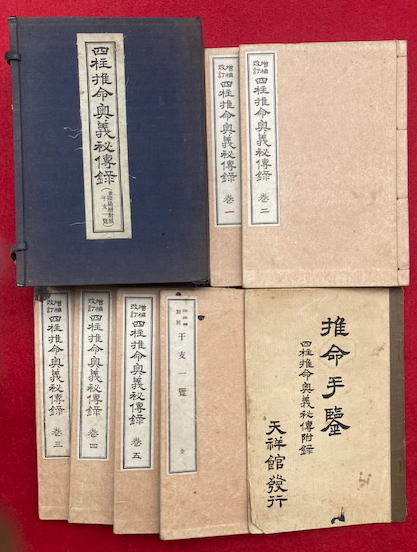 四柱推命奥義秘傳錄
干支一覽
增補
改訂
四柱推命奥義秘傳錄
卷一
增補
改訂
四柱推命奥義秘傳錄
卷二
增補
改訂
四柱推命奥義秘傳錄
卷三
增補
改訂
四柱推命奥義秘傳錄
卷四
增補
改訂
四柱推命奥義秘傳錄
卷五
干支一覽
全
推命手鑒
四柱推命奥義秘傳附錄
天祥館發行